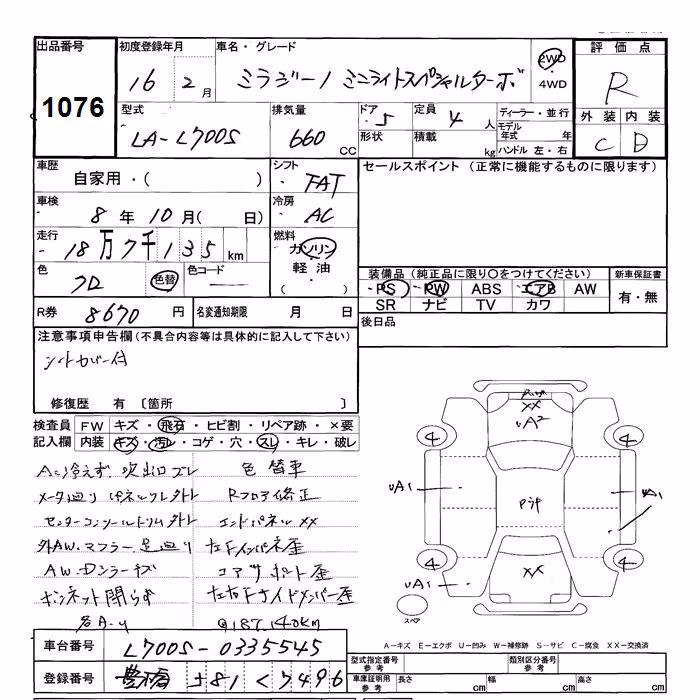 出品番号 初度登録年月 車名・グレード 評価点
1076 16 2月 ミラジーノ ミニライトスペシャルターボ 2WD・4WD R
型式 排気量 ドア 定員 ディーラー・並行 外装 内装
LA-L700S 660 CC ・5 4人 モデル年式 年 C D
形状 積載 kg ハンドル 左・右
車歴 シフト セールスポイント (正常に機能するものに限ります)
自家用・( ) ・FAT
車検 冷房
8年10月( 日) ・AC
走行 燃料
・18万7千135km ガソリン
軽油
・( )
色 色コード 装備品(純正品に限り○をつけてください) 新車保証書
クロ 色替 PS PW ABS エアB AW 有・無
SR ナビ TV カワ
R券 8670円 名変通知期限 月 日 後日品
注意事項申告欄(不具合内容等は具体的に記入して下さい)
シートカバー付
修復歴 有 〔箇所 〕
検査員 FW キズ・飛石・ヒビ割・リペア跡・×要
記入欄 内装 キズ・汚レ・コゲ・穴・スレ・キレ・破レ
A/C冷えず 吹出口ズレ 色替車
メータ廻りパネルツメ外レ Rフロア修正
センターコンソールトリム外レ エンドパネルXX
外AW.マフラー.足廻り 左Fインパネ歪
AW.Dンラーキズ コアサポート歪
ボンネット閉らず 左右Fサイドメンバー歪
各A-U @187,140km
XX
UA2
4 4
UA1 UA1
4 4
UA1 XX
スペア
A-キズ E-エクボ U-凹み W-補修跡 S-サビ C-腐食 XX-交換済
車台番号 L700S-0335545
型式指定番号 参考 類別区分番号 参考
登録番号 豊橋 581 く7496
車庫証明用 参考 長さ cm 幅 cm 高さ cm